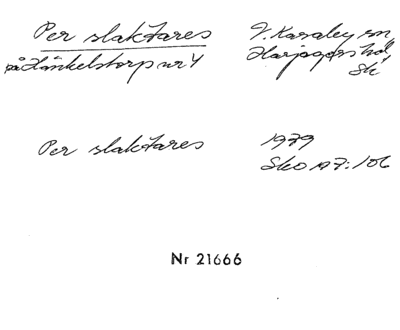 Per slaktares
på Hänkelstorp nr 4
V. Karaby sn,
Harjagers hd,
Sk
Per slaktares
1979
Sko A 7:106
Nr 21666